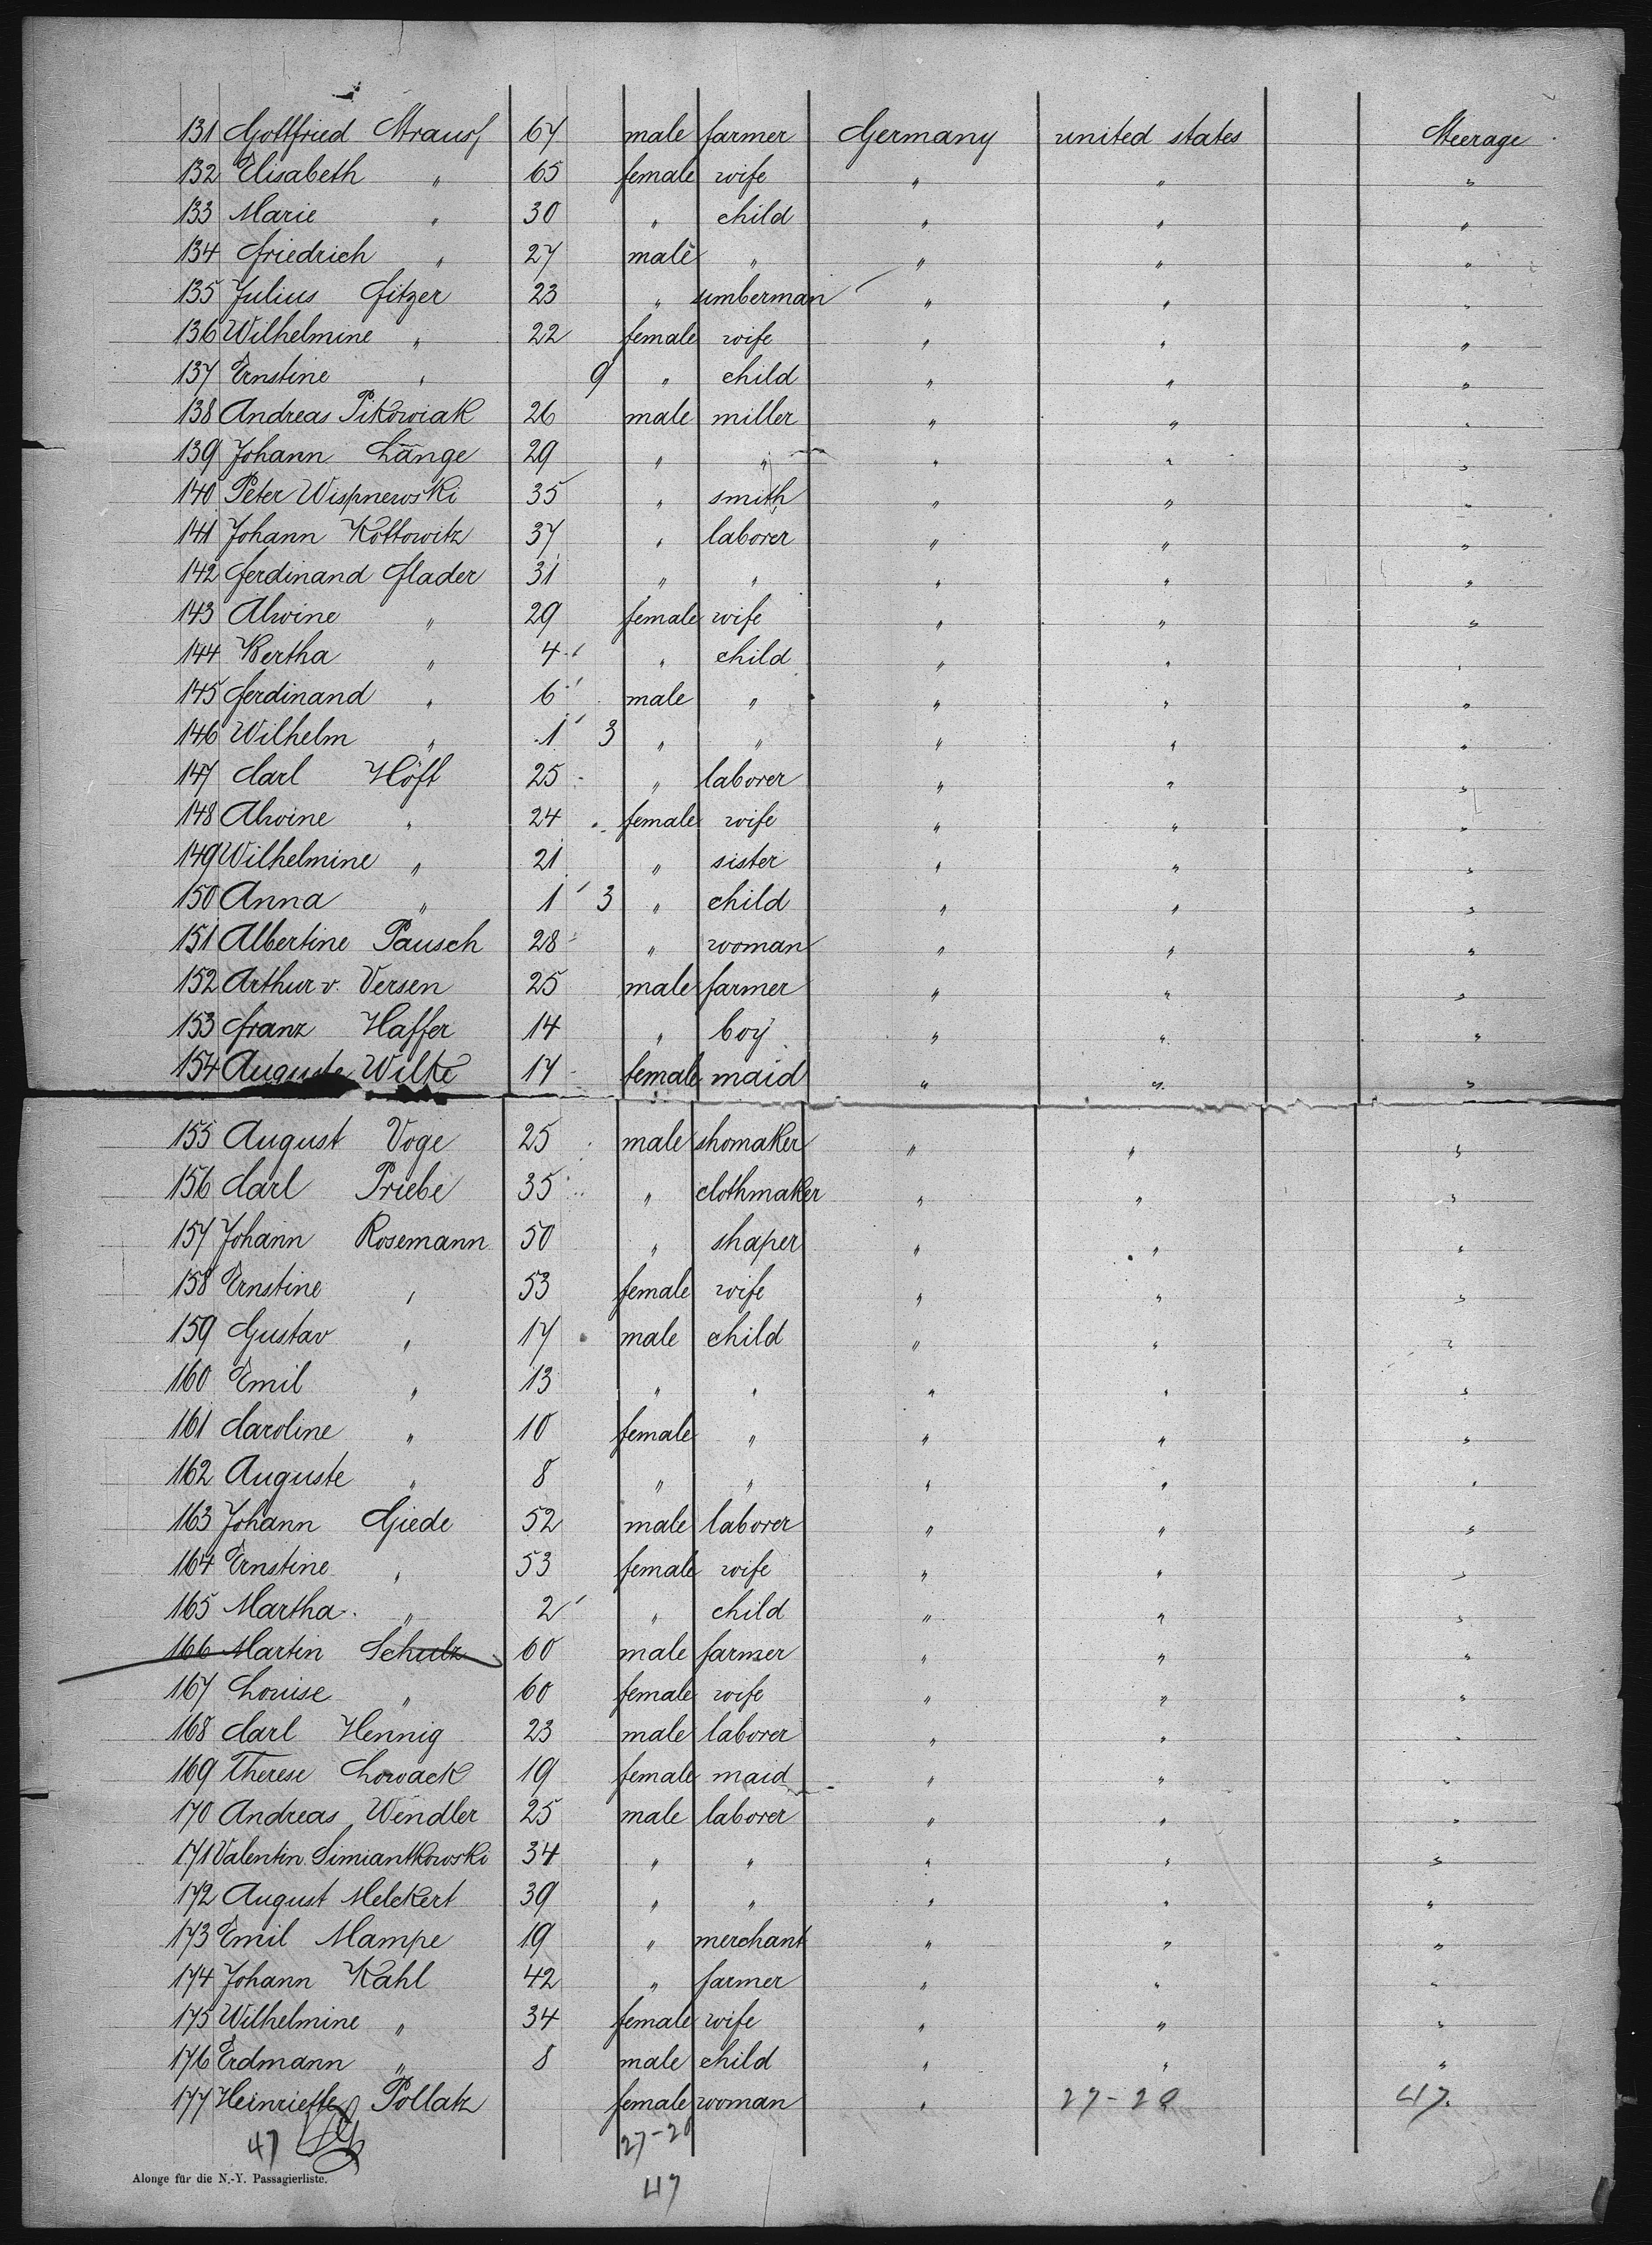 131 Gottfried Strauss 67 male farmer Germany united states Steerage
132 Elisabeth " 65 female wife " " "
133 Marie " 30 " child " " "
134 Friedrich " 27 male " " " "
135 Julius Fitzer 23 " timberman " " "
136 Wilhelmine " 22 female wife " " "
137 Ernstine " 9 " child " " "
138 Andreas Pikowiak 26 male miller " " "
139 Johann Länge 29 " " " " "
140 Peter Wispnewski 35 " smith " " "
141 Johann Kottowitz 37 " laborer " " "
142 Ferdinand Flader 31 " " " " "
143 Alwine " 29 female wife " " "
144 Bertha " 4 " child " " "
145 Ferdinand " 6 male " " " "
146 Wilhelm " 1 3 " " " " "
147 Carl Höft 25 " laborer " " "
148 Alwine " 24 female wife " " "
149 Wilhelmine " 21 " sister " " "
150 Anna " 1 3 " child " " "
151 Albertine Pausch 28 " woman " " "
152 Arthur v. Versen 25 male farmer " " "
153 Franz Haffer 14 " boy " " "
154 Auguste Wilke 17 female maid " " "
155 August Voge 25 male shomaker " " "
156 Carl Priebe 35 " clothmaker " " "
157 Johann Rosemann 50 " shaper " " "
158 Ernstine " 53 female wife " " "
159 Gustav " 17 male child " " "
160 Emil " 13 " " " " "
161 Caroline " 10 female " " " "
162 Auguste " 8 " " " " "
163 Johann Giede 52 male laborer " " "
164 Ernstine " 53 female wife " " "
165 Martha " 2 " child " " "
166 Martin Schulz 60 male farmer " " "
167 Louise " 60 female wife " " "
168 Carl Hennig 23 male laborer " " "
169 Therese Lowack 19 female maid " " "
170 Andreas Wendler 25 male laborer " " "
171 Valentin Simiantkowski 34 " " " " "
172 August Melckert 39 " " " " "
173 Emil Mampe 19 " merchant " " "
174 Johann Kahl 42 " farmer " " "
175 Wilhelmine " 34 female wife " " "
176 Erdmann " 8 male child " " "
177 Heinriette Pollatz female woman " 27-20 47.
47 27-20
Alonge für die N.-Y. Passagierliste.
47